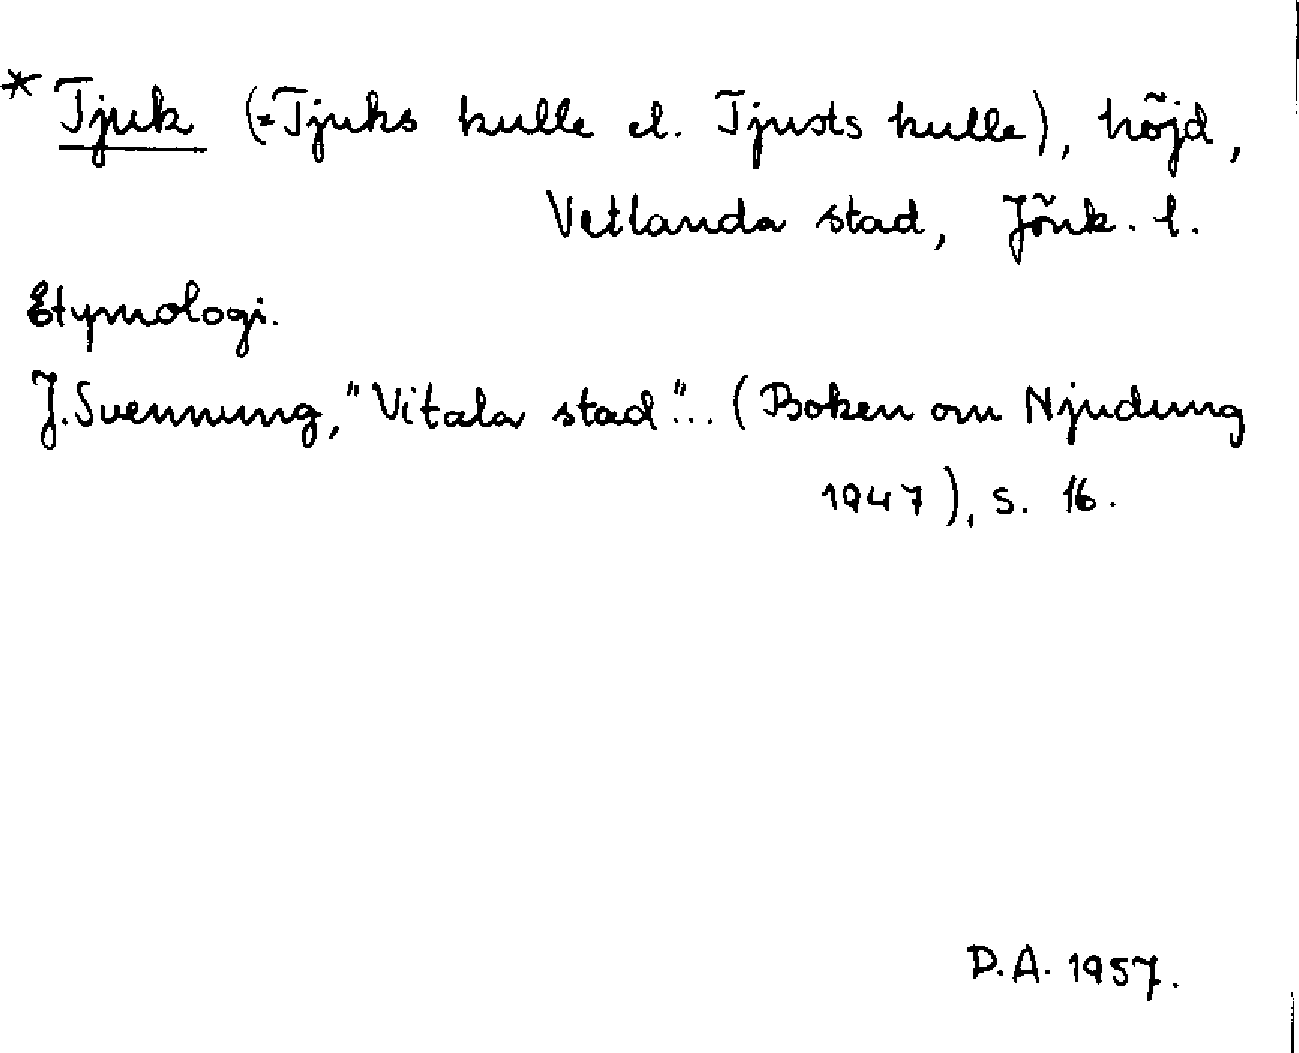 * Tjuk (=Tjuks kulle el. Tjusts kulle), höjd,
Vetlanda stad, Jönk. l.
Etymologi.
J. Svennung, "Vitala stad"... (Boken om Njudung
1947), s. 16.
D.A. 1957.